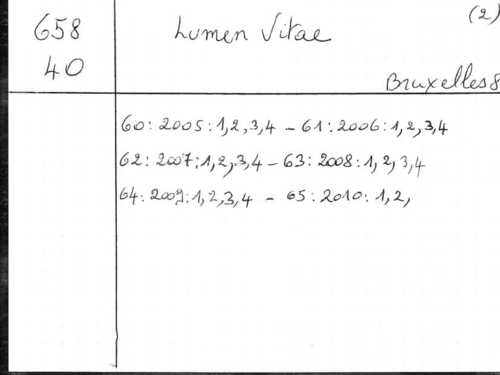 (2)
658 Lumen Vitae
40
Bruxelles 8
60: 2005: 1, 2, 3, 4 - 61: 2006: 1, 2, 3, 4
62: 2007: 1, 2, 3, 4 - 63: 2008: 1, 2, 3, 4
64: 2009: 1, 2, 3, 4 - 65: 2010: 1, 2,